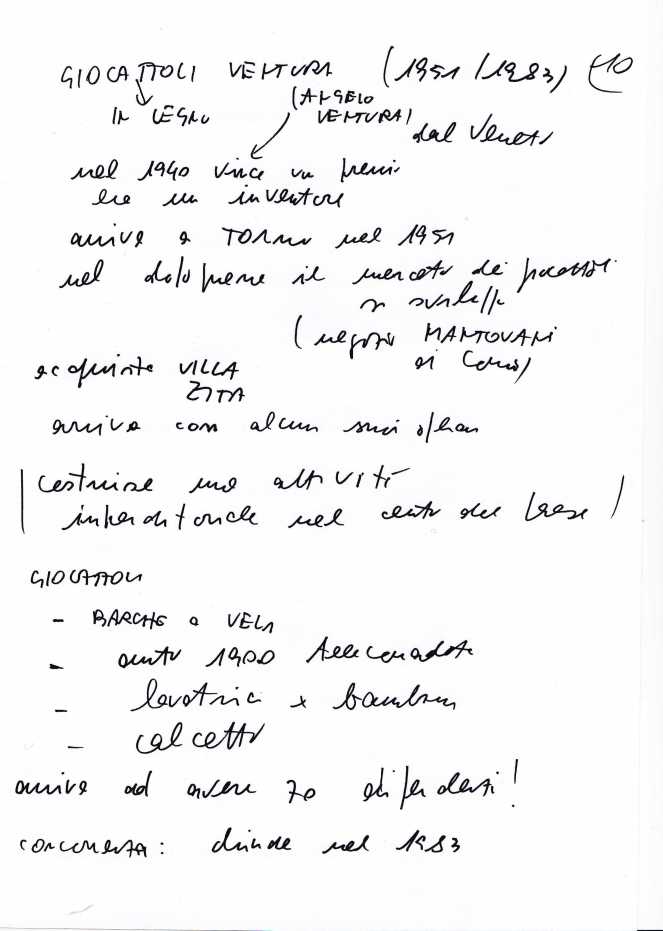 GIOCATTOLI VENTURA (1951/1983) 10
IN LEGNO (ANGELO
VENTURA)
dal Veneto
nel 1940 vince un premio
era un inventore
arriva a TORNO nel 1951
nel doloperra il mercato dei giocattoli
si sviluppa
(negozio MANTOVANI
di Como)
acquista VILLA
ZITA
arriva con alcuni suoi operai
costruire una attività
imprenditoriale nel centro del paese
GIOCATTOLI
- BARCHE a VELA
- auto 1900 telecomandate
- lavatrici x bambini
- calcetto
arriva ad avere 70 dipendenti!
CONCORRENZA: chiude nel 1983